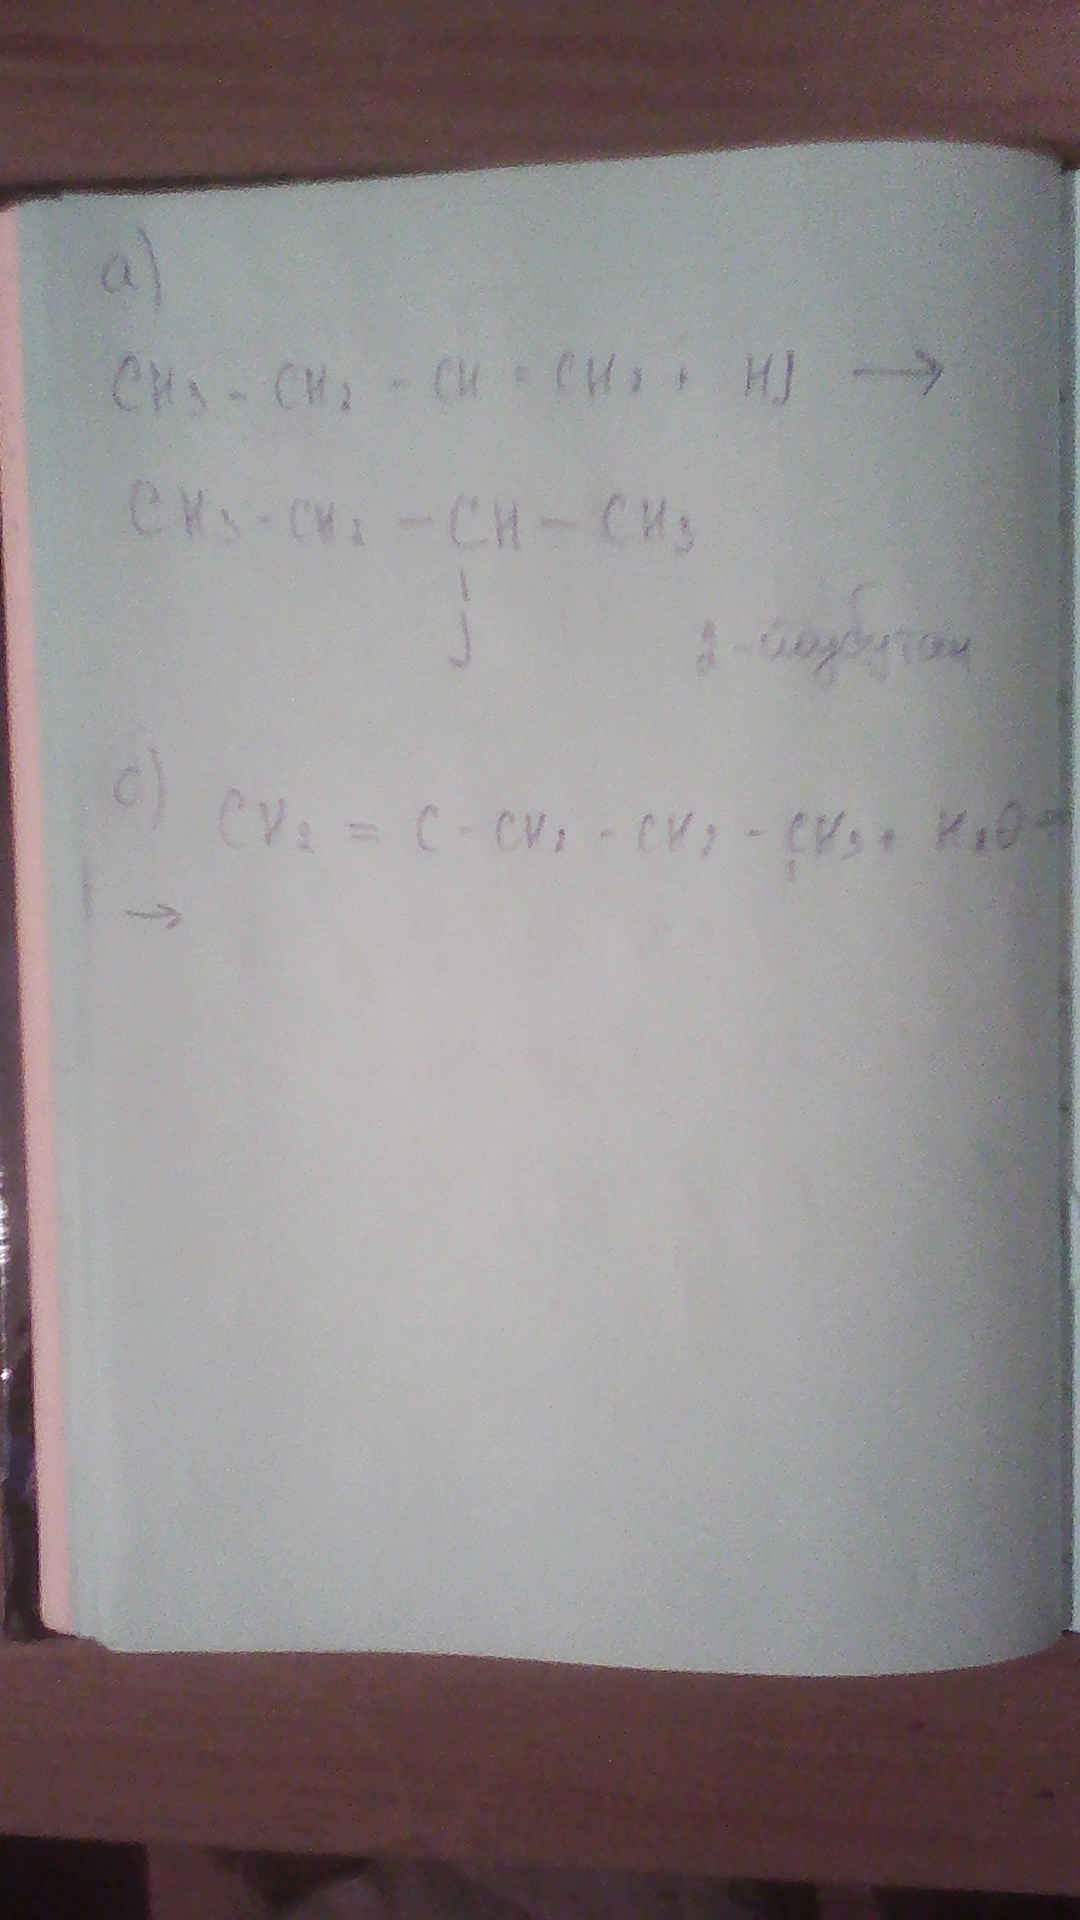 a)
CH3 - CH2 - CH = CH2 + HJ →
CH3 - CH2 - CH - CH3
J
2-йодбутан
c) CH2 = C - CH2 - CH2 - CH3 + H2O →
→